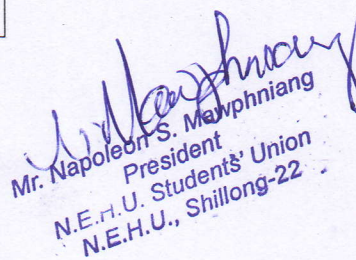 N. Mawphniang
Mr. Napoleon S. Mawphniang
President
N.E.H.U. Students' Union
N.E.H.U., Shillong-22